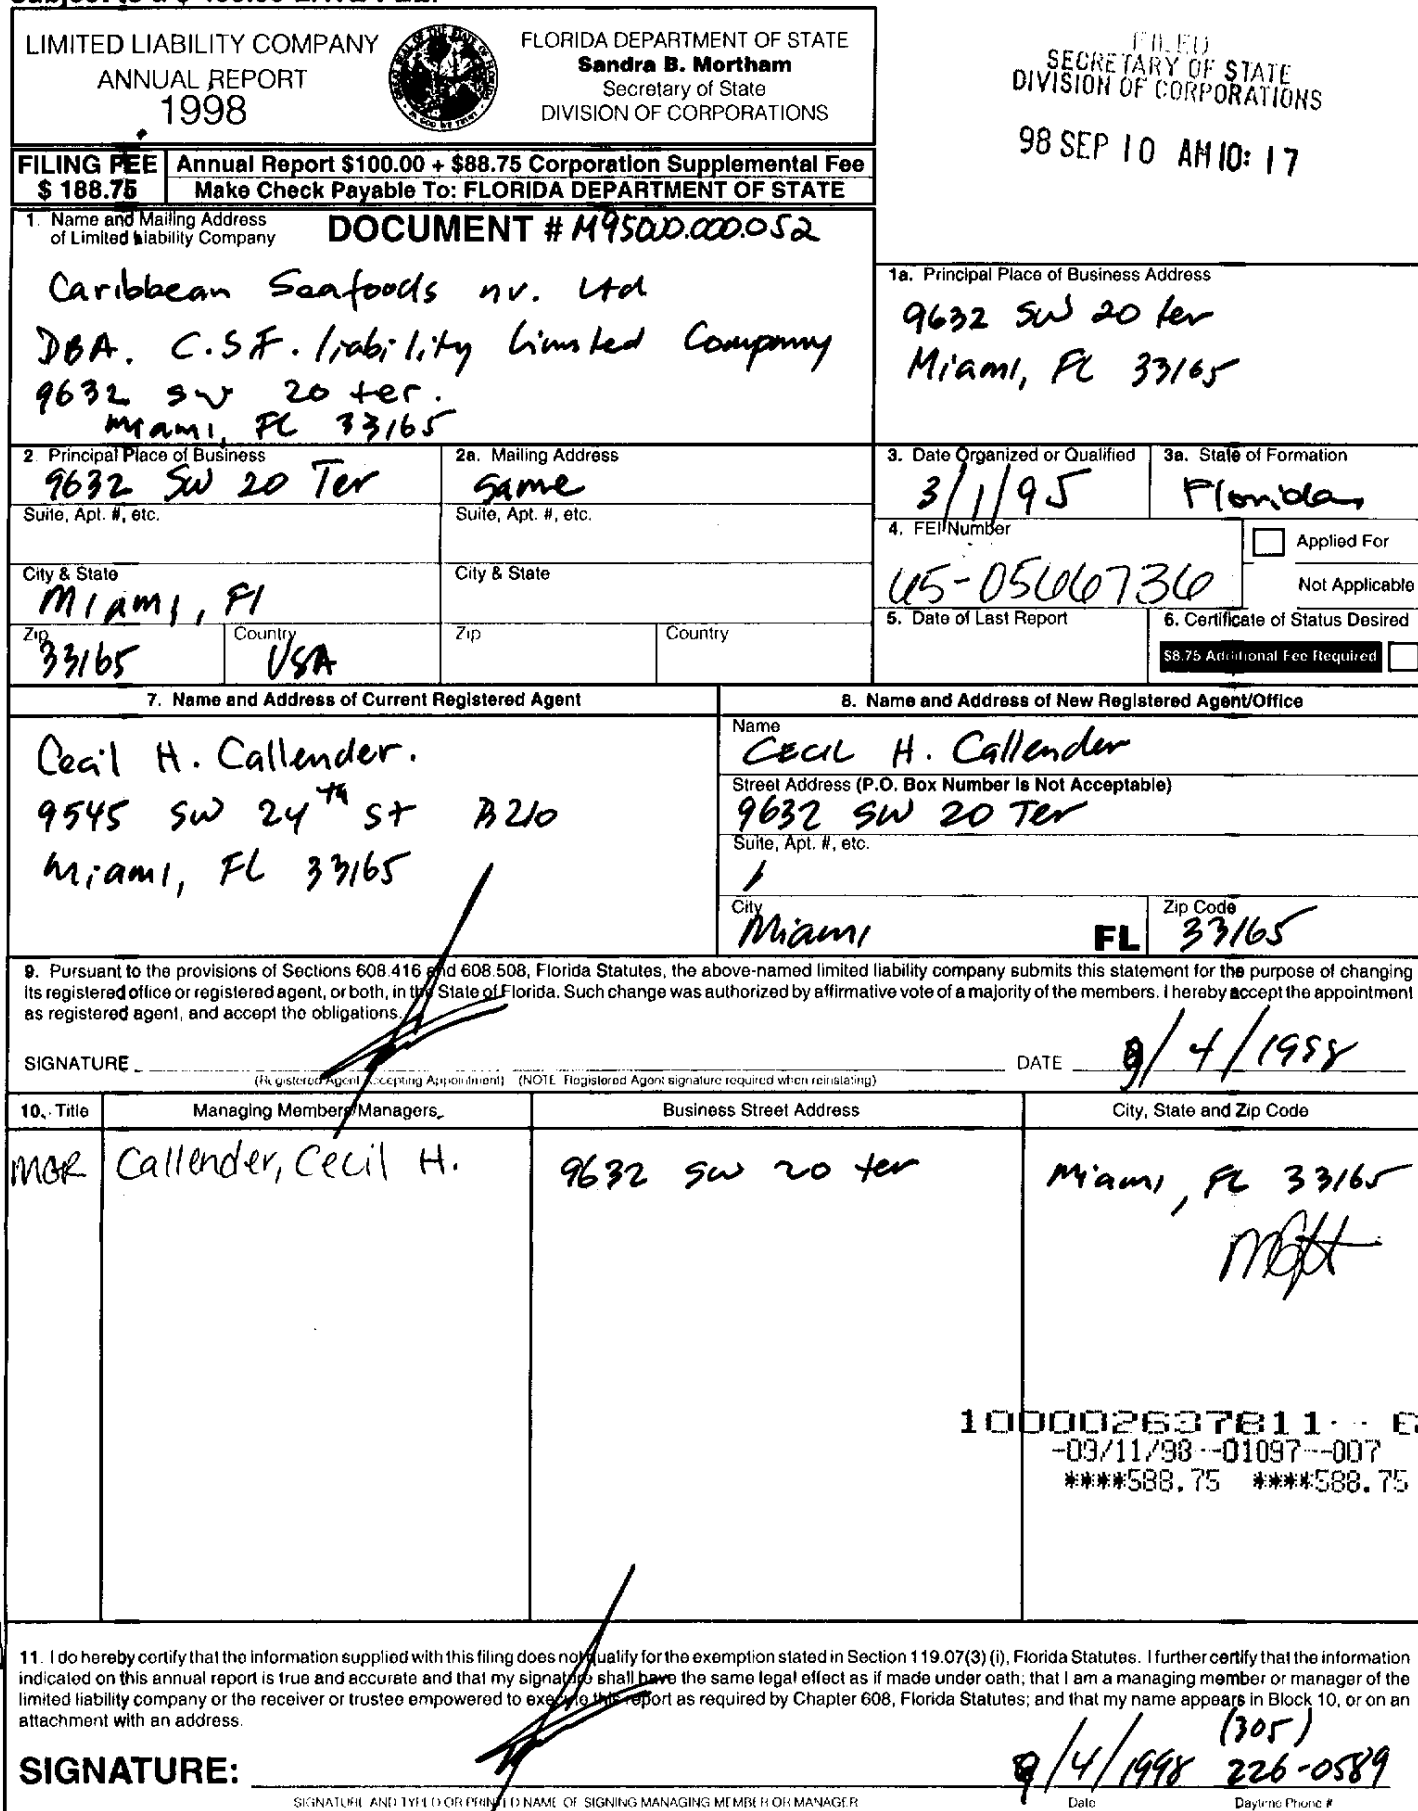 LIMITED LIABILITY COMPANY
ANNUAL REPORT
1998
FLORIDA DEPARTMENT OF STATE
Sandra B. Mortham
Secretary of State
DIVISION OF CORPORATIONS
FILED
SECRETARY OF STATE
DIVISION OF CORPORATIONS
98 SEP 10 AM 10: 17
FILING FEE
$ 188.75
Annual Report $100.00 + $88.75 Corporation Supplemental Fee
Make Check Payable To: FLORIDA DEPARTMENT OF STATE
1. Name and Mailing Address
of Limited Liability Company
DOCUMENT # M95000.000.052
Caribbean Seafoods nv. Ltd
DBA. C.S.F. liability Limited Company
9632 sw 20 ter.
Miami, FL 33165
1a. Principal Place of Business Address
9632 SW 20 ter
Miami, FL 33165
2. Principal Place of Business
9632 SW 20 Ter
2a. Mailing Address
same
3. Date Organized or Qualified
3/1/95
3a. State of Formation
Florida
Suite, Apt. #, etc.
Suite, Apt. #, etc.
4. FEI Number
65-0566736
Applied For
Not Applicable
City & State
Miami, Fl
City & State
5. Date of Last Report
6. Certificate of Status Desired
$8.75 Additional Fee Required
Zip
33165
Country
USA
Zip
Country
7. Name and Address of Current Registered Agent
Cecil H. Callender.
9545 SW 24th St B210
Miami, FL 33165
8. Name and Address of New Registered Agent/Office
Name
CECIL H. Callender
Street Address (P.O. Box Number Is Not Acceptable)
9632 SW 20 Ter
Suite, Apt. #, etc.
City
Miami
FL
Zip Code
33165
9. Pursuant to the provisions of Sections 608.416 and 608.508, Florida Statutes, the above-named limited liability company submits this statement for the purpose of changing
its registered office or registered agent, or both, in the State of Florida. Such change was authorized by affirmative vote of a majority of the members. I hereby accept the appointment
as registered agent, and accept the obligations.
SIGNATURE
DATE 9/4/1998
(Registered Agent Accepting Appointment) (NOTE Registered Agent signature required when reinstating)
10. Title
Managing Members/Managers
Business Street Address
City, State and Zip Code
MGR
Callender, Cecil H.
9632 SW 20 ter
Miami, FL 33165
100002637811
-09/11/98--01097--007
****588.75 ****588.75
11. I do hereby certify that the information supplied with this filing does not qualify for the exemption stated in Section 119.07(3) (i), Florida Statutes. I further certify that the information
indicated on this annual report is true and accurate and that my signature shall have the same legal effect as if made under oath; that I am a managing member or manager of the
limited liability company or the receiver or trustee empowered to execute this report as required by Chapter 608, Florida Statutes; and that my name appears in Block 10, or on an
attachment with an address.
SIGNATURE:
9/4/1998
(305)
226-0589
SIGNATURE AND TYPED OR PRINTED NAME OF SIGNING MANAGING MEMBER OR MANAGER
Date
Daytime Phone #